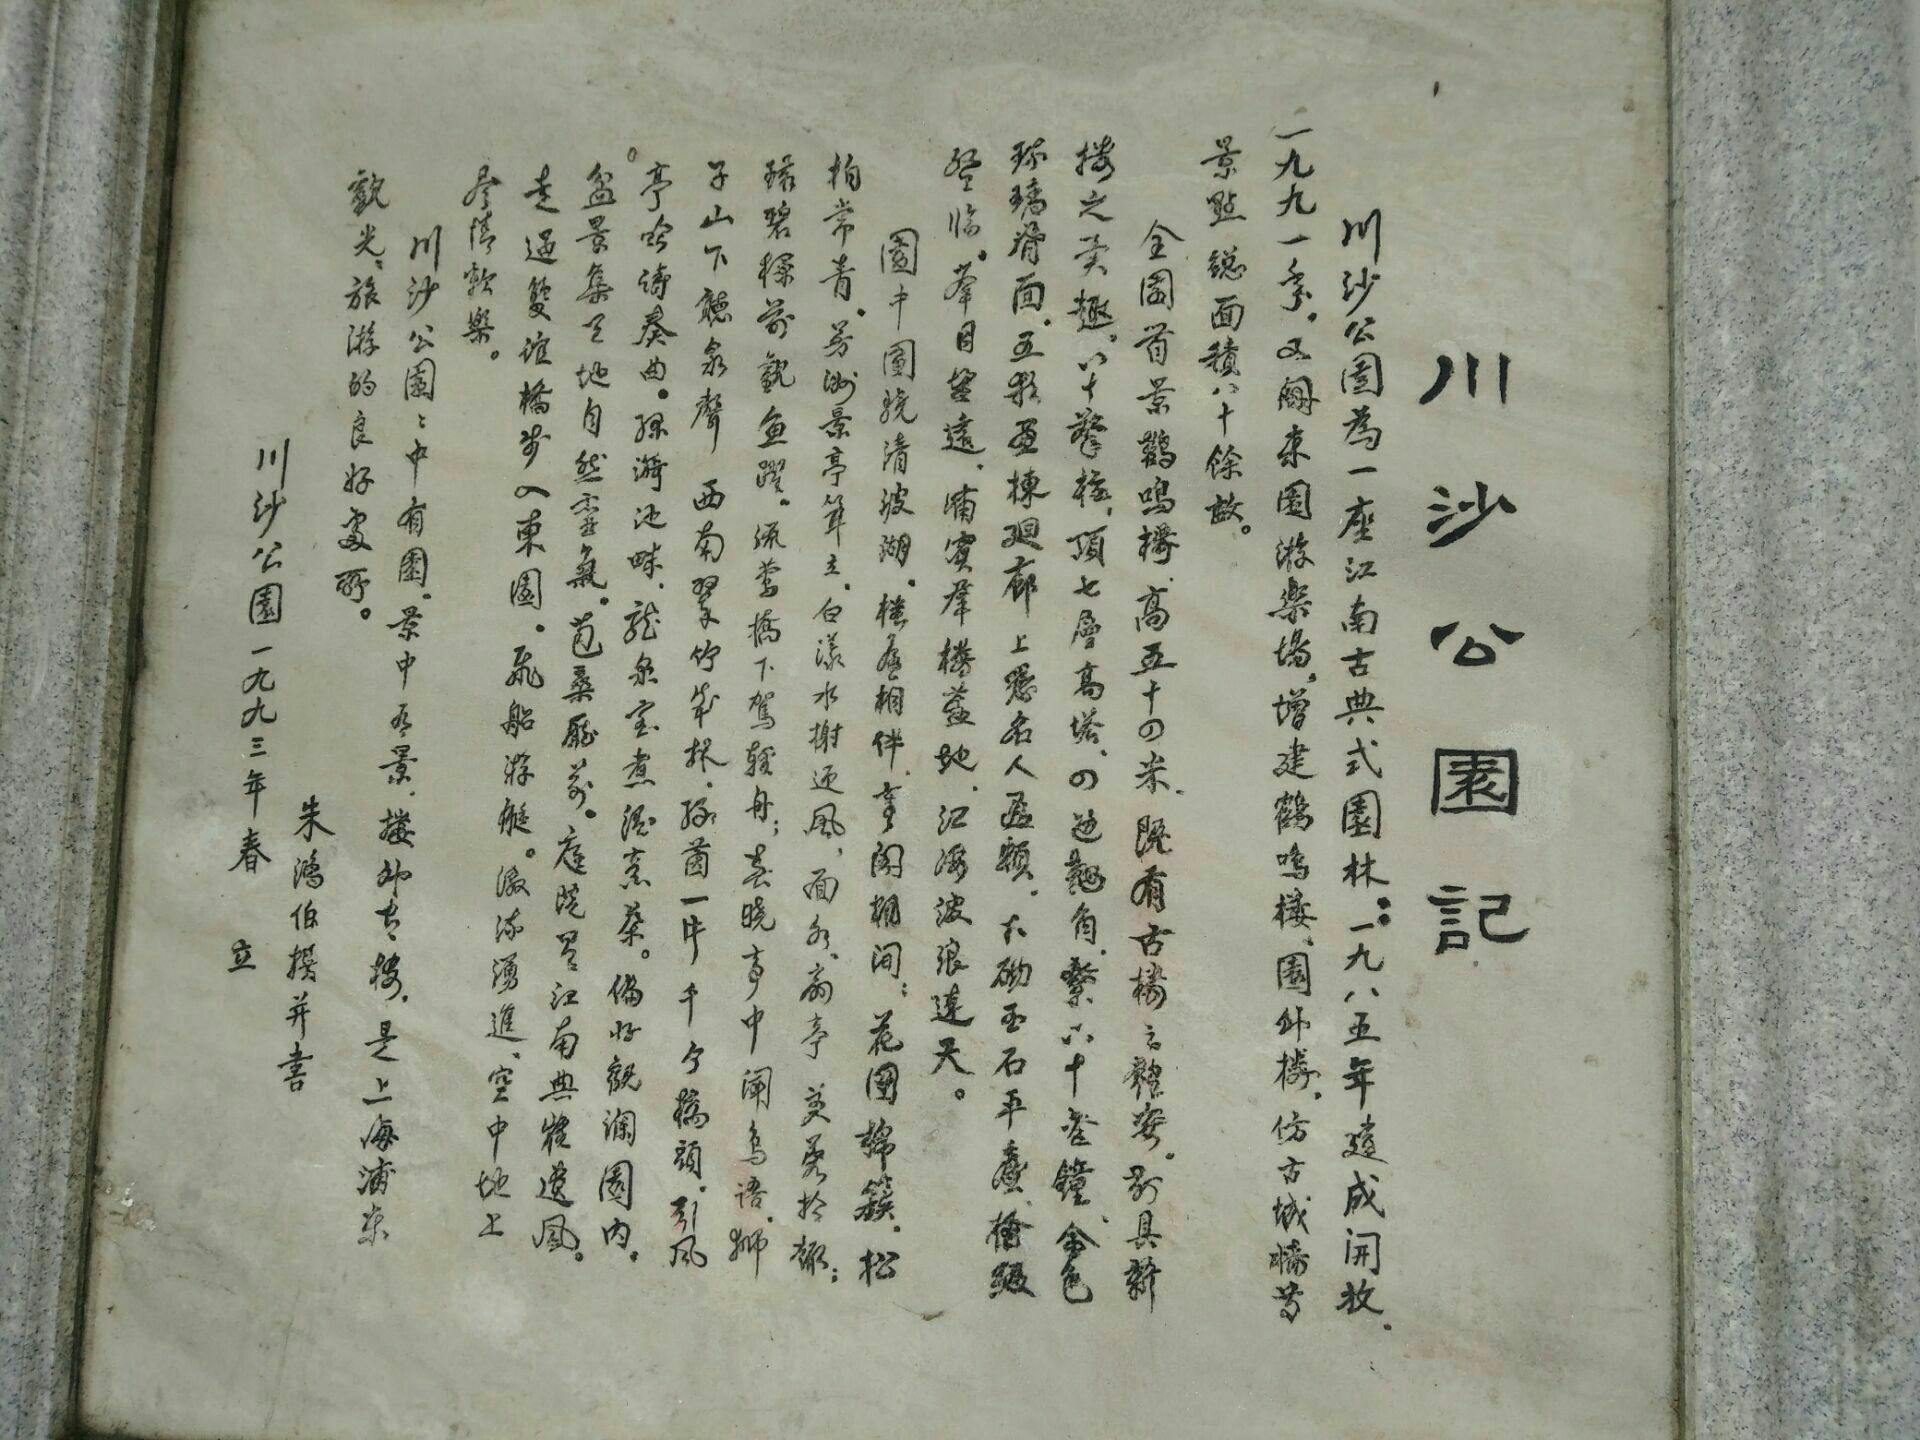 川沙公園記
川沙公園為一座江南古典式園林：一九八五年建成開放.
一九九一年.又闢東園游樂場,增建鶴鳴樓、園外樓,仿古城牆等
景點總面積八十餘畝。
全園首景鶴鳴樓、高五十四米、既有古樓之雅姿.別具新
樓之美趣,六十擎柱、頂七層高塔、四边翹角.繫六十金鐘、金色
琉璃脊面.五彩畫棟迴廊上懸名人匾額.下砌玉石平臺、檐級
登臨。舉目望遠.浦濱群樓蓋地.江海波浪連天。
園中圍繞清波湖.樓臺相伴.亭閣相间；花團錦簇.松
柏常青.芳洲景亭耸立.白漾水榭迎風、面水扇亭 芙蓉扵艷；
環碧樑前觀魚躍。流鶯橋下駕輕舟；春曉亭中聞鸟語.獅
子山下聽泉聲 西南翠竹成林.绿茵一片 千兮橋頭.引風
亭吟傍奏曲。漪池畔.龍泉室煮酒烹茶。偏好觀瀾園内.
盆景集天地自然靈氣。苞桑廳前.庭院置江南典雅遺風。
走過雙谊橋步入東園.飛船游艇。激流湧進、空中地上
尽情歡樂。
川沙公園：中有園.景中有景.樓外有樓.是上海浦东
觀光.旅游的良好處所。
朱鴻伯撰并書
川沙公園一九九三年春 立